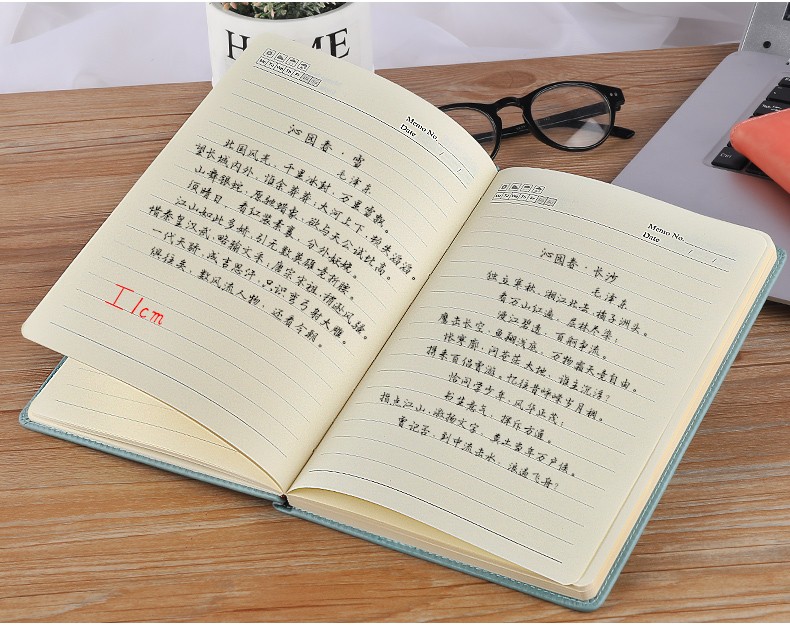 HOME
Mo Tu We Th Fr
Memo No.
Date / /
沁园春·雪
毛泽东
北国风光，千里冰封，万里雪飘。
望长城内外，惟余莽莽；大河上下，顿失滔滔。
山舞银蛇，原驰蜡象，欲与天公试比高。
须晴日，看红装素裹，分外妖娆。
江山如此多娇，引无数英雄竞折腰。
惜秦皇汉武，略输文采；唐宗宋祖，稍逊风骚。
一代天骄，成吉思汗，只识弯弓射大雕。
俱往矣，数风流人物，还看今朝。
工1cm
Mo Tu We Th Fr
Memo No.
Date / /
沁园春·长沙
毛泽东
独立寒秋，湘江北去，橘子洲头。
看万山红遍，层林尽染；
漫江碧透，百舸争流。
鹰击长空，鱼翔浅底，万物霜天竞自由。
怅寥廓，问苍茫大地，谁主沉浮？
携来百侣曾游。忆往昔峥嵘岁月稠。
恰同学少年，风华正茂；
书生意气，挥斥方遒。
指点江山，激扬文字，粪土当年万户侯。
曾记否，到中流击水，浪遏飞舟？